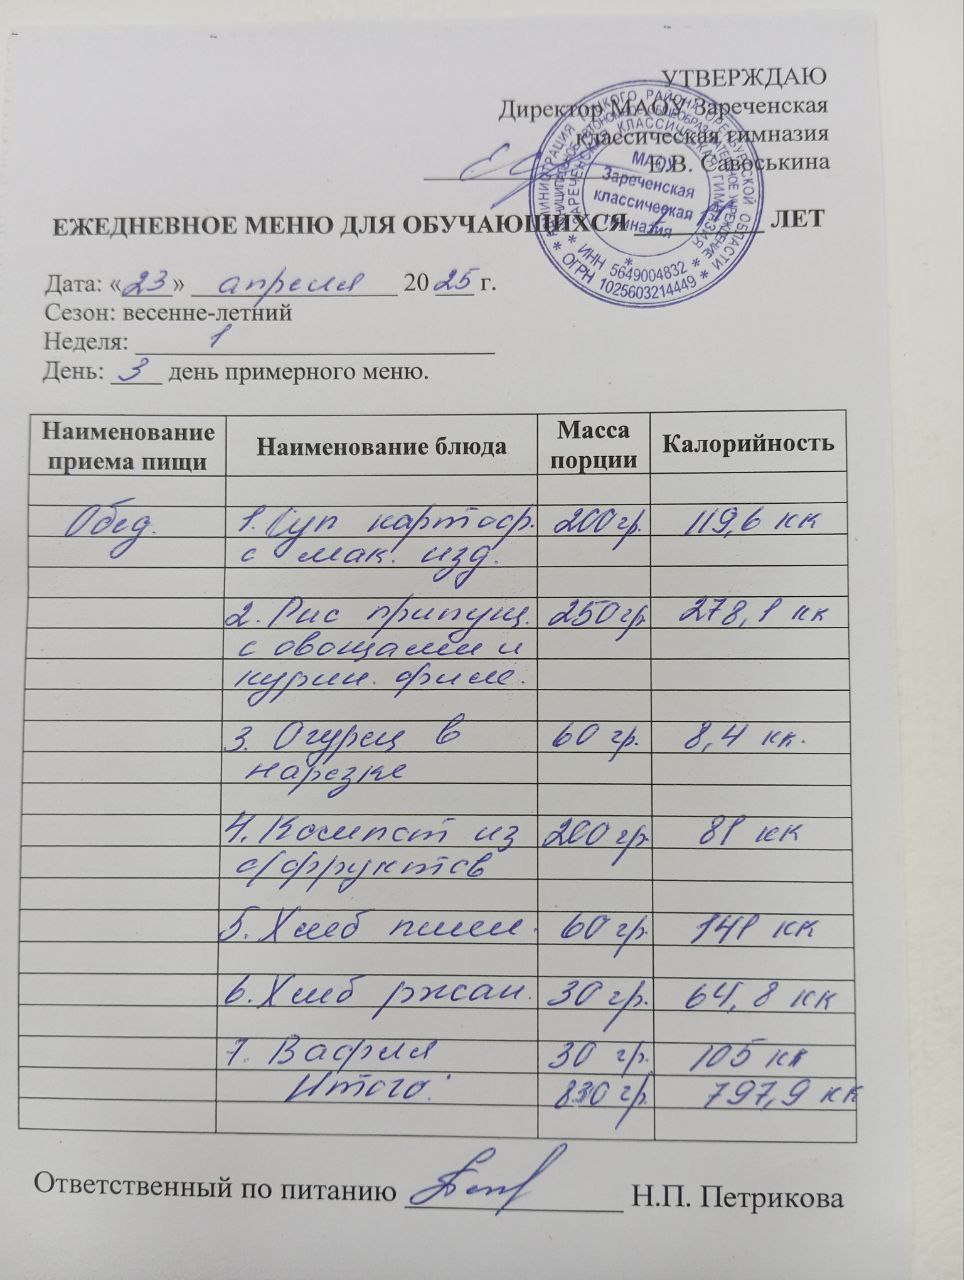 УТВЕРЖДАЮ
Директор МАОУ Зареченская
классическая гимназия
Е.В. Савоськина
МАОУ
Зареченская
классическая
гимназия
* ИНН 5649004832 *
* ОГРН 1025603214449 *
ЕЖЕДНЕВНОЕ МЕНЮ ДЛЯ ОБУЧАЮЩИХСЯ ЛЕТ
Дата: «23» апреля 2025 г.
Сезон: весенне-летний
Неделя: 1
День: 3 день примерного меню.
Наименование приема пищи Наименование блюда Масса порции Калорийность
Обед. 1. Суп картоф. 200 гр. 119,6 кк
с мак. изд.
2. Рис припущ. 250 гр 278,1 кк
с овощами и
курин. филе.
3. Огурец в 60 гр. 8,4 кк.
нарезке
4. Компот из 200 гр. 81 кк
с/фруктов
5. Хлеб пшен. 60 гр. 141 кк
6. Хлеб ржан. 30 гр. 64,8 кк
7. Вафля 30 гр. 105 кк
Итого: 830 гр. 797,9 кк
Ответственный по питанию Н.П. Петрикова